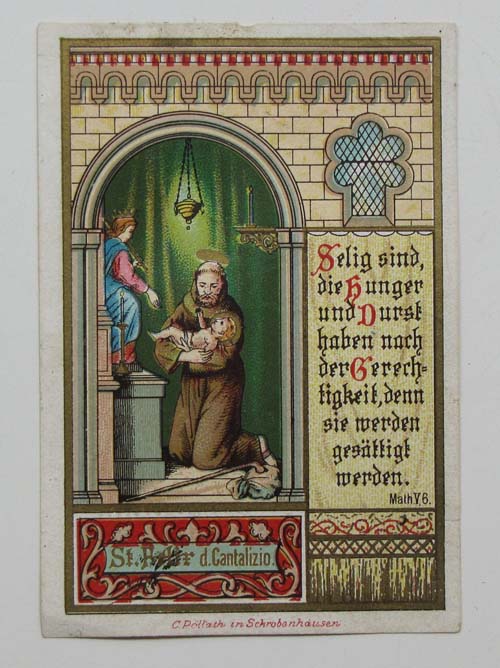 Selig sind,
die Hunger
und Durst
haben nach
der Gerech=
tigkeit, denn
sie werden
gesättigt
werden.
Math V, 6.
St. d. Cantalizio.
C. Pöllath in Schrobenhausen